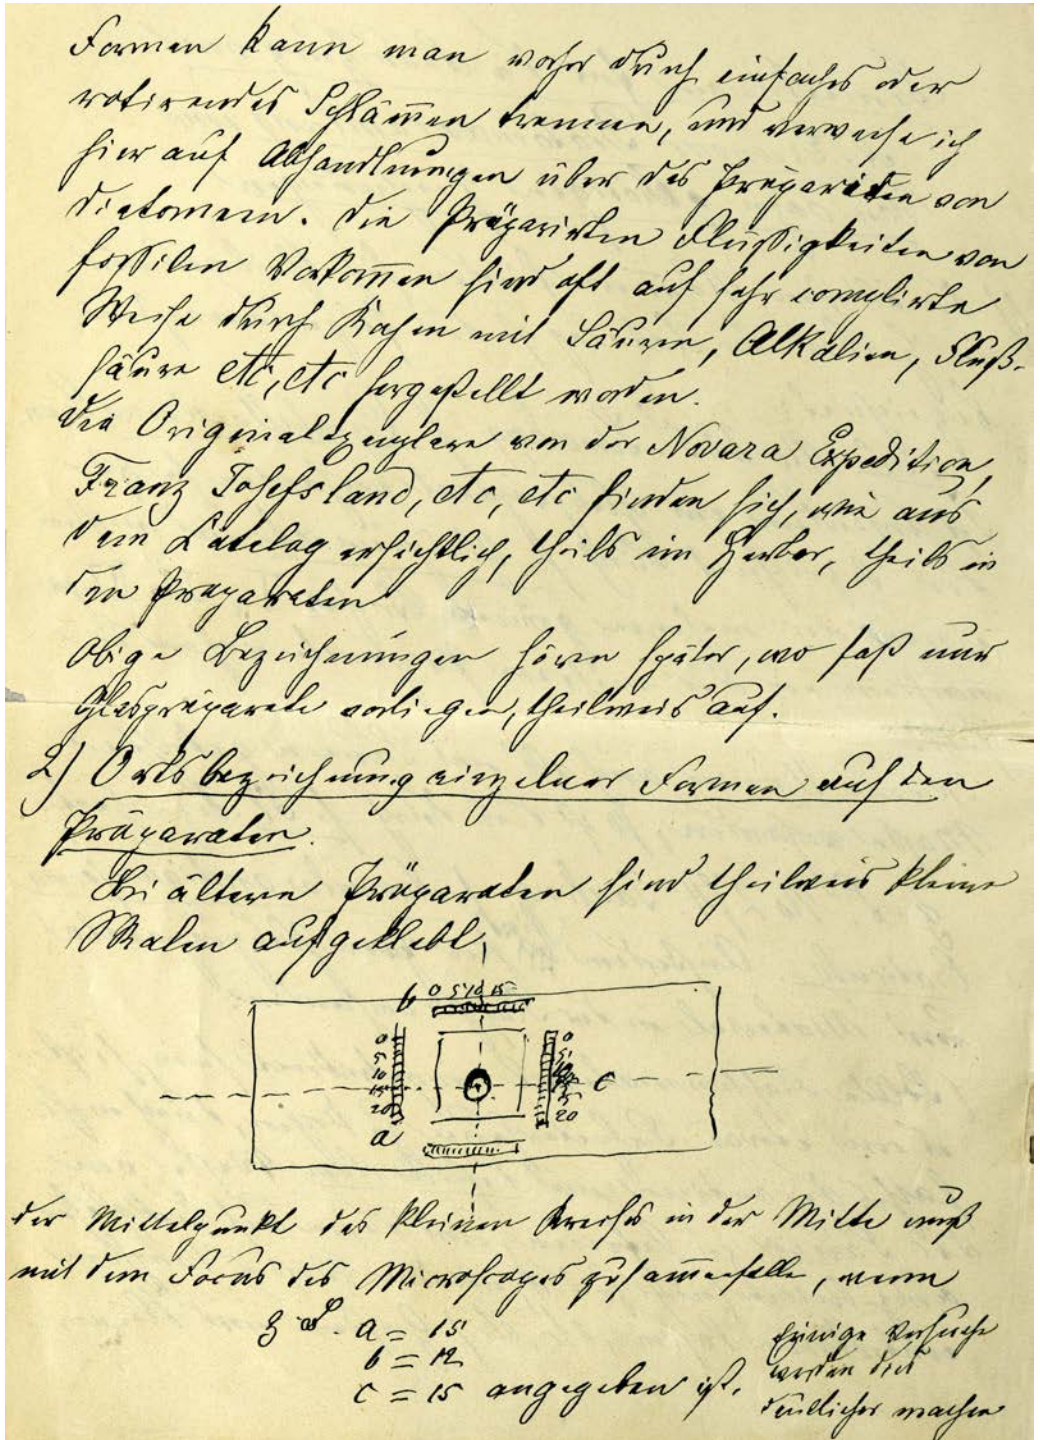 Formen kann man vorher durch einfaches oder
rotirendes Schlämmen trennen, und verweise ich
hier auf Abhandlungen über das Präpariren von
Diatomeen. Die Präparirten Flüssigkeiten von
fossilen Vorkommen sind oft auf sehr complirte
Weise durch Kochen mit Säuren, Alkalien, Fluß-
säure etc, etc hergestellt worden.
Die Originalexemplare von der Novara Expedition,
Franz Josefsland, etc, etc finden sich, wie aus
dem Catalog ersichtlich, theils im Herbar, theils in
den Präparaten
Obige Bezeichnungen hören später, wo fast nur
Glaspräparate vorliegen, theilweis auf.
2) Ortsbezeichnung einzelner Formen auf den
Präparaten.
Bei ältern Präparaten sind theilweis kleine
Skalen aufgeklebt,
b 0 5 10 15
0 0
5 5
10 10
15 c
20 20
a
der Mittelpunkt des kleinen Kreises in der Mitte muß
mit dem Focus des Microscopes zusammenfalle, wenn
z.B. a = 15
b = 12
c = 15 angegeben ist.
Einige Versuche
werden dies
deutlicher machen